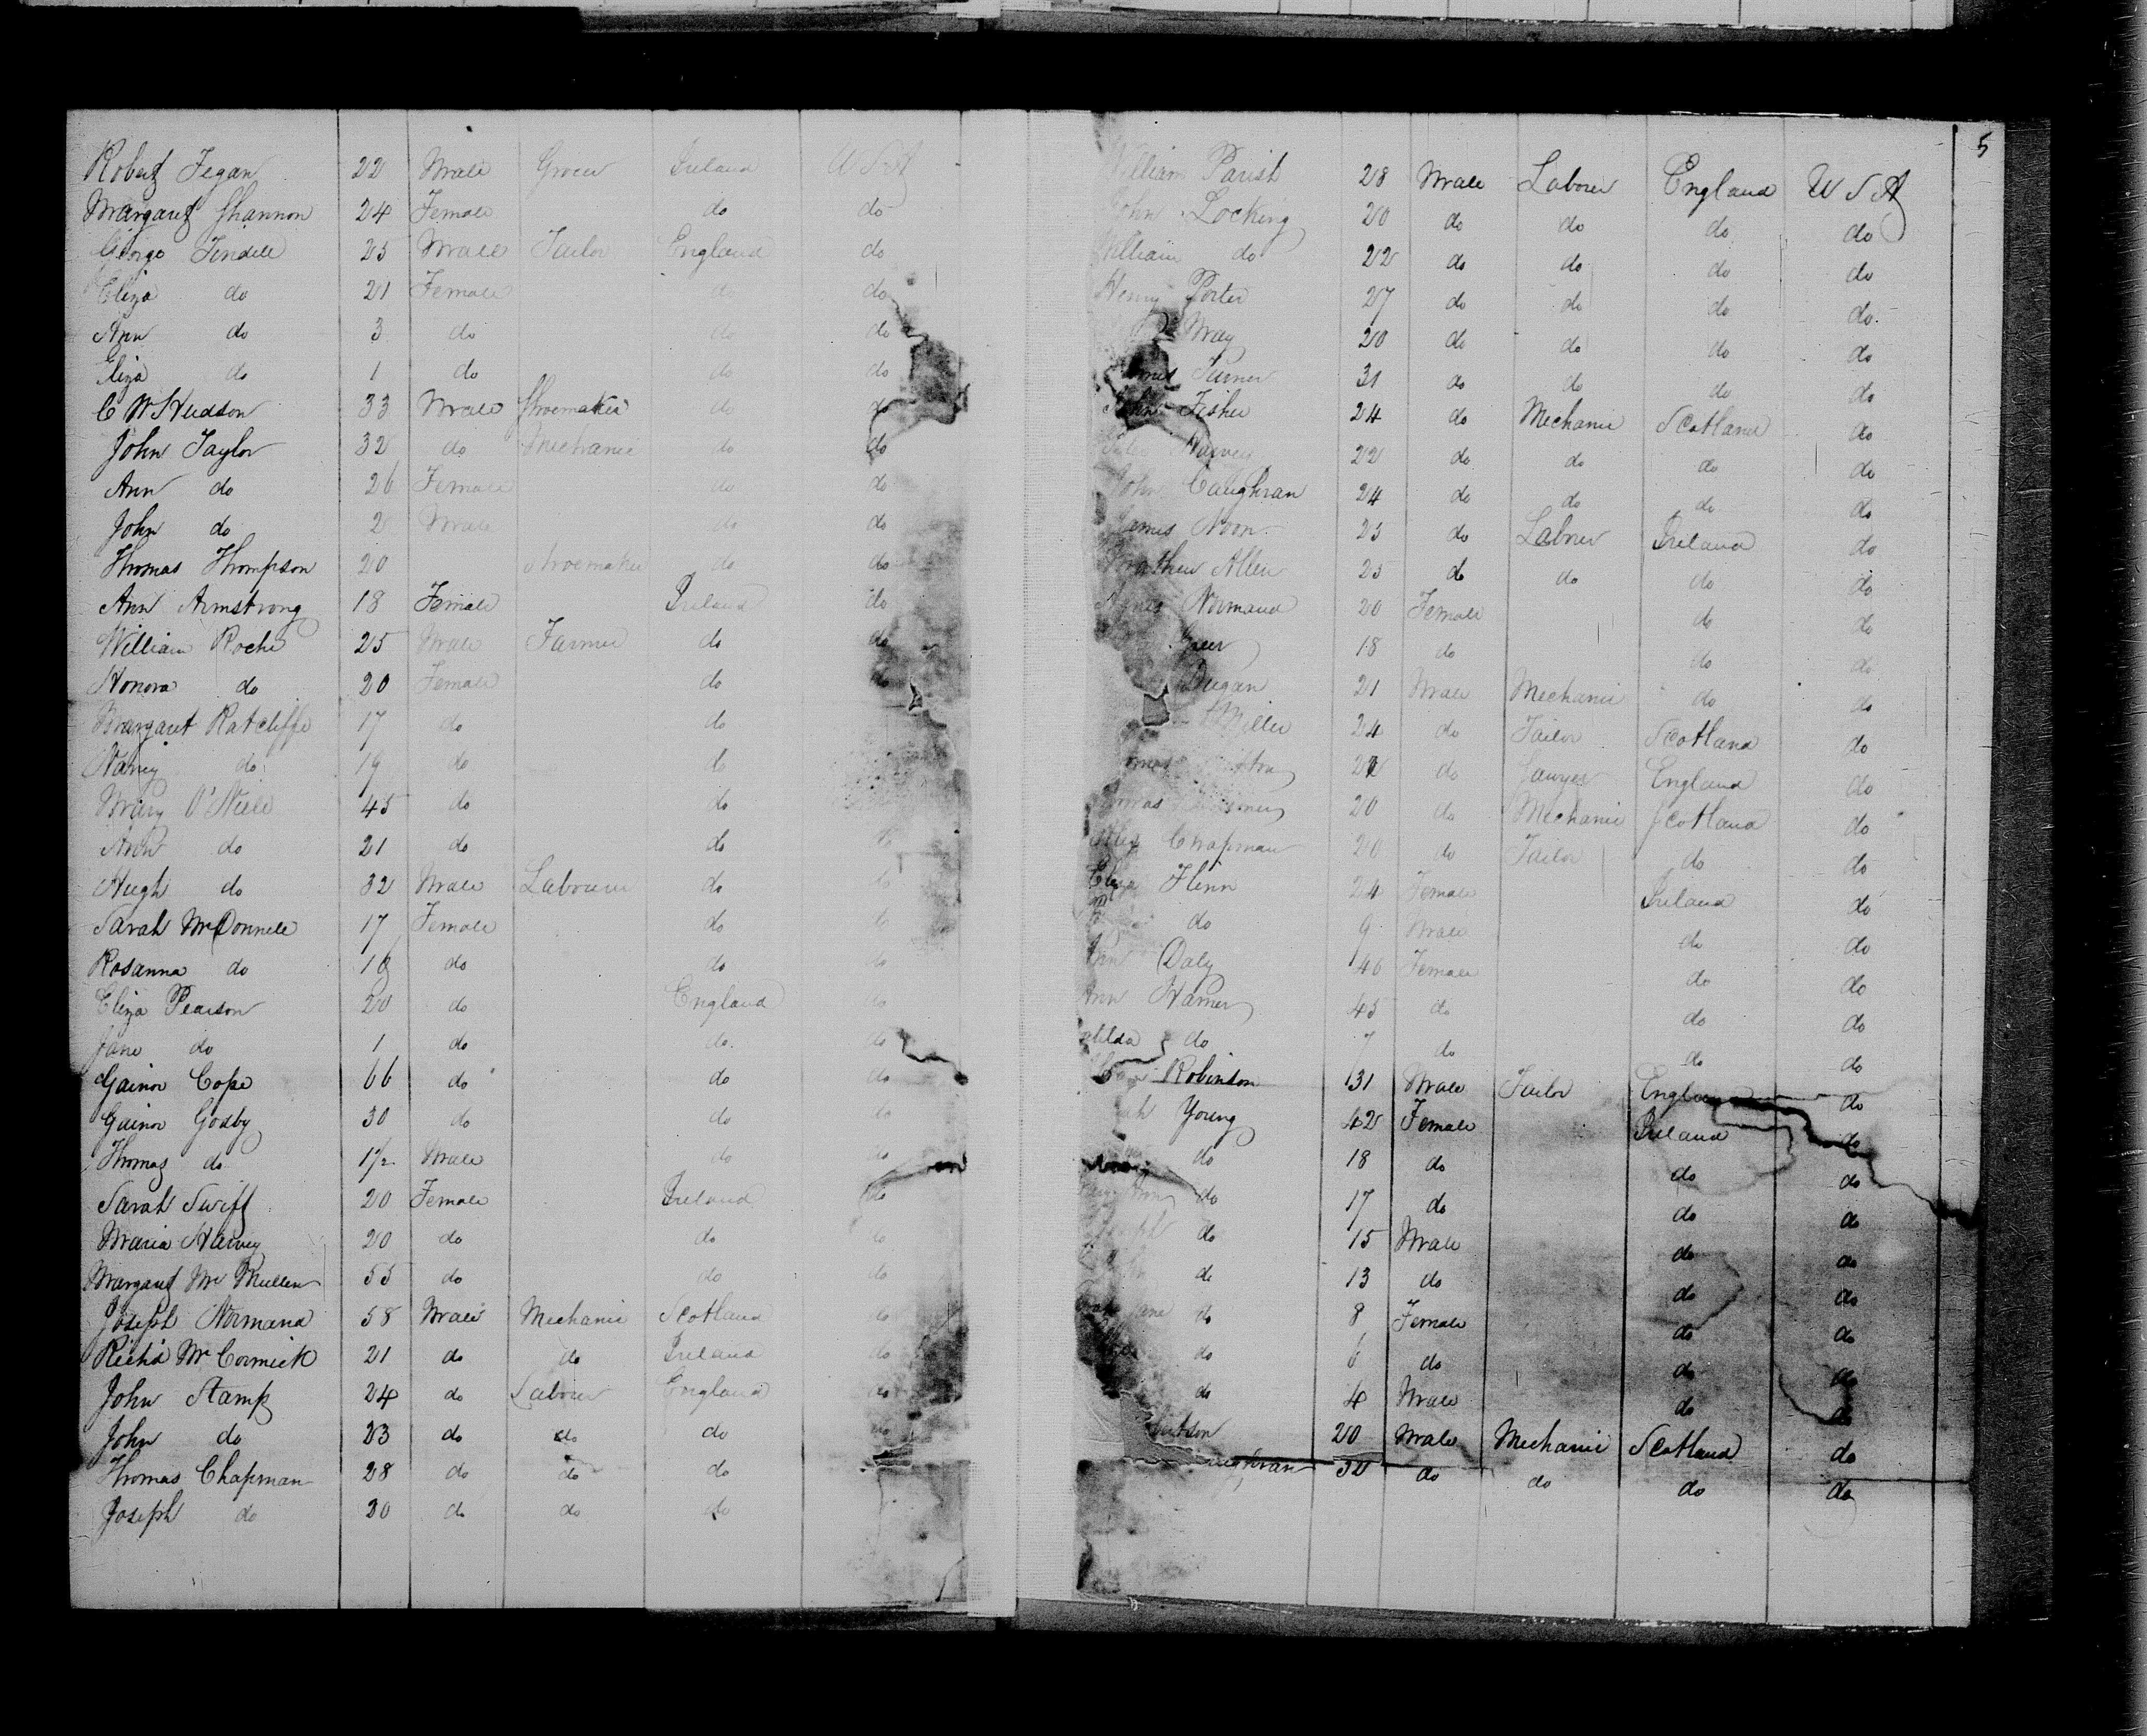 Robert Fegan 22 Male Grocer Ireland U S A
Margaret Shannon 24 Female do do
George Tindell 23 Male Tailor England do
Eliza do 21 Female do do
Ann do 3 do do do
Eliza do 1 do do do
C W Hudson 33 Male Shoemaker do do
John Taylor 32 do Mechanic do do
Ann do 26 Female do do
John do 2 Male do do
Thomas Thompson 20 Shoemaker do do
Ann Armstrong 18 Female Ireland do
William Roche 25 Male Farmer do do
Honora do 20 Female do do
Margaret Ratcliffe 17 do do
Nancy do 19 do do
Mary O'Niell 45 do do
Ann do 21 do do do
Hugh do 32 Male Labourer do do
Sarah McDonnell 17 Female do do
Rosanna do do do do
Eliza Pearson 20 do England do
Jane do 1 do do do
Gainor Cope 66 do do do
Gainor Gosby 30 do do do
Thomas do 1/2 Male do do
Sarah Swift 20 Female Ireland do
Maria Harvey 20 do do do
Margaret McMullen 55 do do do
Joseph Normand 58 Male Mechanic Scotland do
Richd McCormick 21 do do Ireland do
John Stamp 24 do Labourer England do
John do 23 do do do
Thomas Chapman 28 do do do
Joseph do 30 do do do
5
William Parish 28 Male Labourer England U S A
John Locking 20 do do do do
William do 22 do do do do
Henry Porter 27 do do do do
Wray 20 do do do do
Turner 31 do do do do
John Fisher 24 do Mechanic Scotland do
Harvey 22 do do do do
John Caughran 24 do do do do
James Noon 25 do Labourer Ireland do
Mathew Allen 25 do do do do
Agnes Normand 20 Female do do
Greer 18 do do do
Dugan 21 Male Mechanic do do
Miller 24 do Tailor Scotland do
do Sawyer England do
20 do Mechanic Scotland do
Chapman 20 do Tailor do do
Eliza Flinn 24 Female Ireland do
do 9 Male do do
Ann Daly 46 Female do do
Ann Hamer 45 do do do
do 7 do do do
Robinson 31 Male Tailor England do
Young 42 Female Ireland do
do 18 do do do
do 17 do do do
do 15 Male do do
do 13 do do do
Jane do 8 Female do do
do 6 do do do
do 4 Male do do
20 Male Mechanic Scotland do
32 do do do do